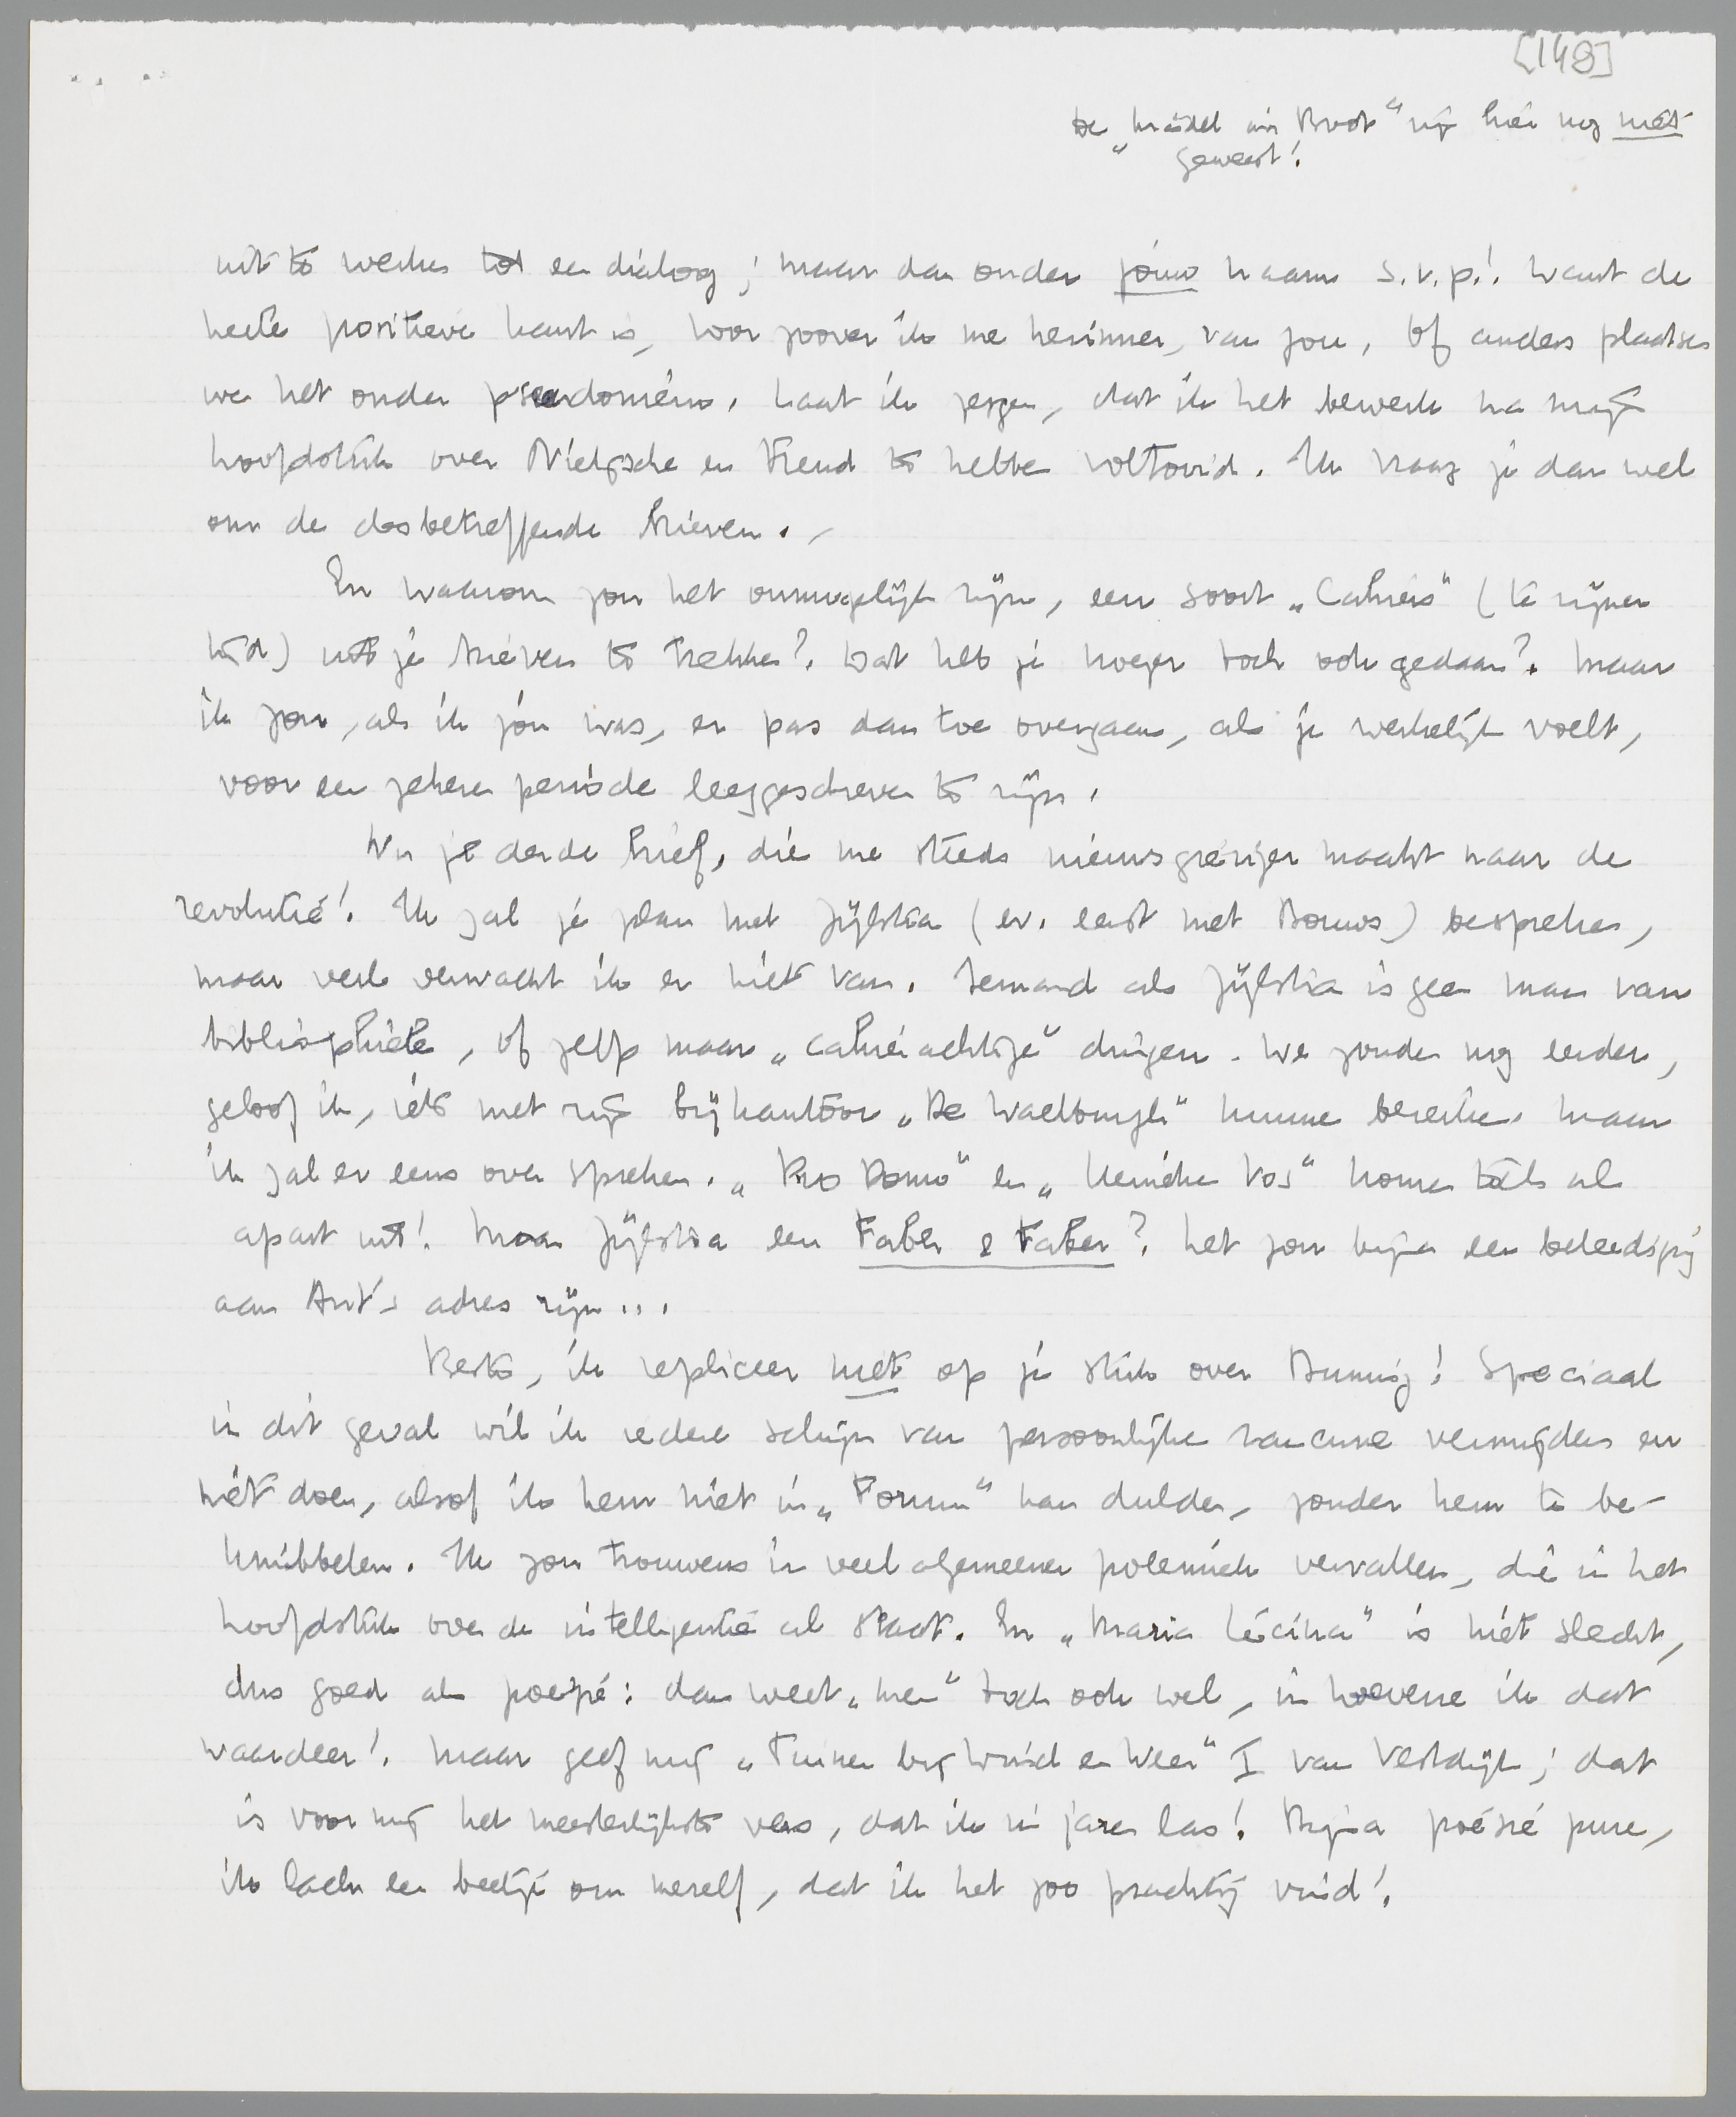 [148]
De „Mädel im Boot" zijn hier nog niet
geweest!
uit te werken tot een dialoog; maar dan onder jóúw naam s.v.p.! Want de
heele positieve kant is, voor zoover ik me herinner, van jou. Of anders plaatsen
we het onder pseudoniem. Laat ik zeggen, dat ik het bewerk na mijn
hoofdstuk over Nietzsche en Freud te hebben voltooid. Ik vraag je dan wel
om de desbetreffende brieven. -
En waarom zou het onmogelijk zijn, een soort „Cahiers" (te zijner
tijd) uit je brieven te trekken? Wat heb je vroeger toch ook gedaan? Maar
ik zou, als ik jóú was, er pas dan toe overgaan, als je werkelijk voelt,
voor een zekere periode leeggeschreven te zijn.
Nu je derde brief, die me steeds nieuwsgieriger maakt naar de
revolutie! Ik zal je plan met Zijlstra (ev. eerst met Bouws) bespreken,
maar veel verwacht ik er niet van. Iemand als Zijlstra is geen man van
bibliophiele, of zelfs maar „cahierachtige" dingen. We zouden nog eerder,
geloof ik, iets met zijn bijkantoor „De Waelburgh" kunnen bereiken. Maar
ik zal er eens over spreken. „Pro Domo" en „Reinicke Vos" komen toch al
apart uit! Maar Zijlstra een Faber & Faber? Het zou bijna een beleediging
aan Ant's adres zijn...
Beste, ik repliceer niet op je stuk over Binning! Speciaal
in dit geval wil ik iedere schijn van persoonlijke rancune vermijden en
niet doen, alsof ik hem niet in „Forum" kan dulden, zonder hem te be-
knibbelen. Ik zou trouwens in veel algemeener polemiek vervallen, die in het
hoofdstuk over de intelligentie al staat. En „Maria Lécina" is niet slecht,
dus goed als poëzie: dan weet „men" toch ook wel, in hoeverre ik dat
waardeer! Maar geef mij „Tuinen bij Wind en Weer" I van Vestdijk; dat
is voor mij het meesterlijkste vers, dat ik in jaren las! Bijna poésie pure,
ik lach een beetje om mezelf, dat ik het zoo prachtig vind!